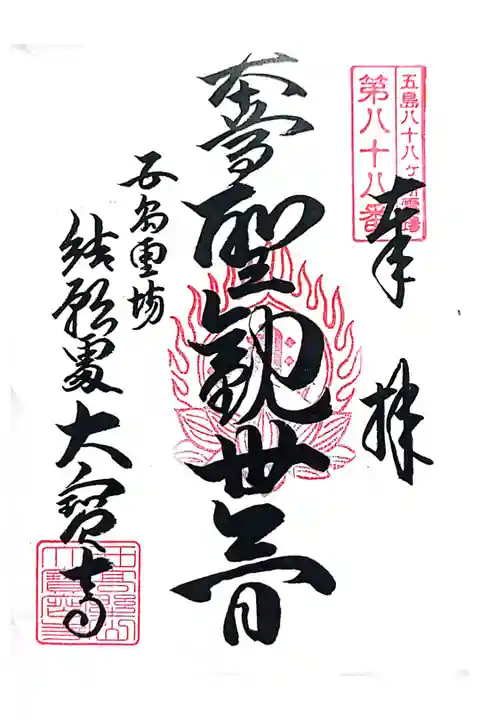 五島八十八ヶ所霊場
第八十八番
奉拝
本尊聖観世音
五島霊場
結願處大寳寺